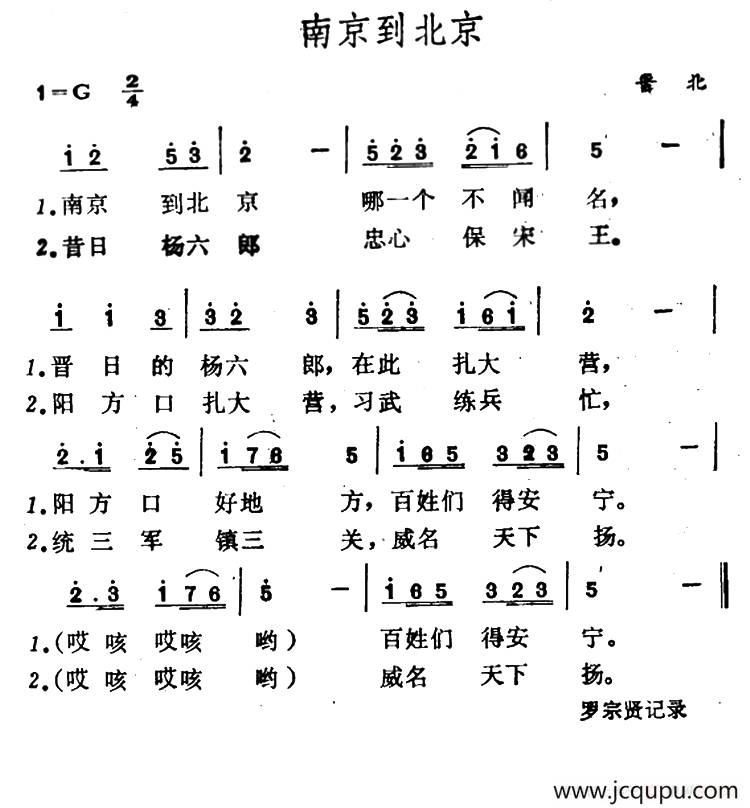 南京到北京
1=G 2/4 晋北
1̇ 2̇ 5̇ 3̇ | 2̇ － | 5̇ 2̇ 3̇ 2̇ 1̇ 6 | 5 － |
1.南京 到北 京 哪一个 不 闻 名，
2.昔日 杨六 郎 忠心 保 宋 王。
1̇ 1̇ 3 | 3̇ 2̇ 3̇ | 5̇ 2̇ 3̇ 1̇ 6 1̇ | 2̇ － |
1.晋 日 的 杨六 郎，在此 扎大 营，
2.阳 方 口 扎大 营，习武 练兵 忙，
2̇ . 1̇ 2̇ 5̇ | 1̇ 7 6 5 | 1̇ 6 5 3 2 3 | 5 － |
1.阳 方 口 好地 方，百姓们 得安 宁。
2.统 三 军 镇三 关，威名 天下 扬。
2̇ . 3̇ 1̇ 7 6 | 5̇ － | 1̇ 6 5 3 2 3 | 5 － ‖
1.(哎 咳 哎咳 哟) 百姓们 得安 宁。
2.(哎 咳 哎咳 哟) 威名 天下 扬。
罗宗贤记录
www.jcqupu.com